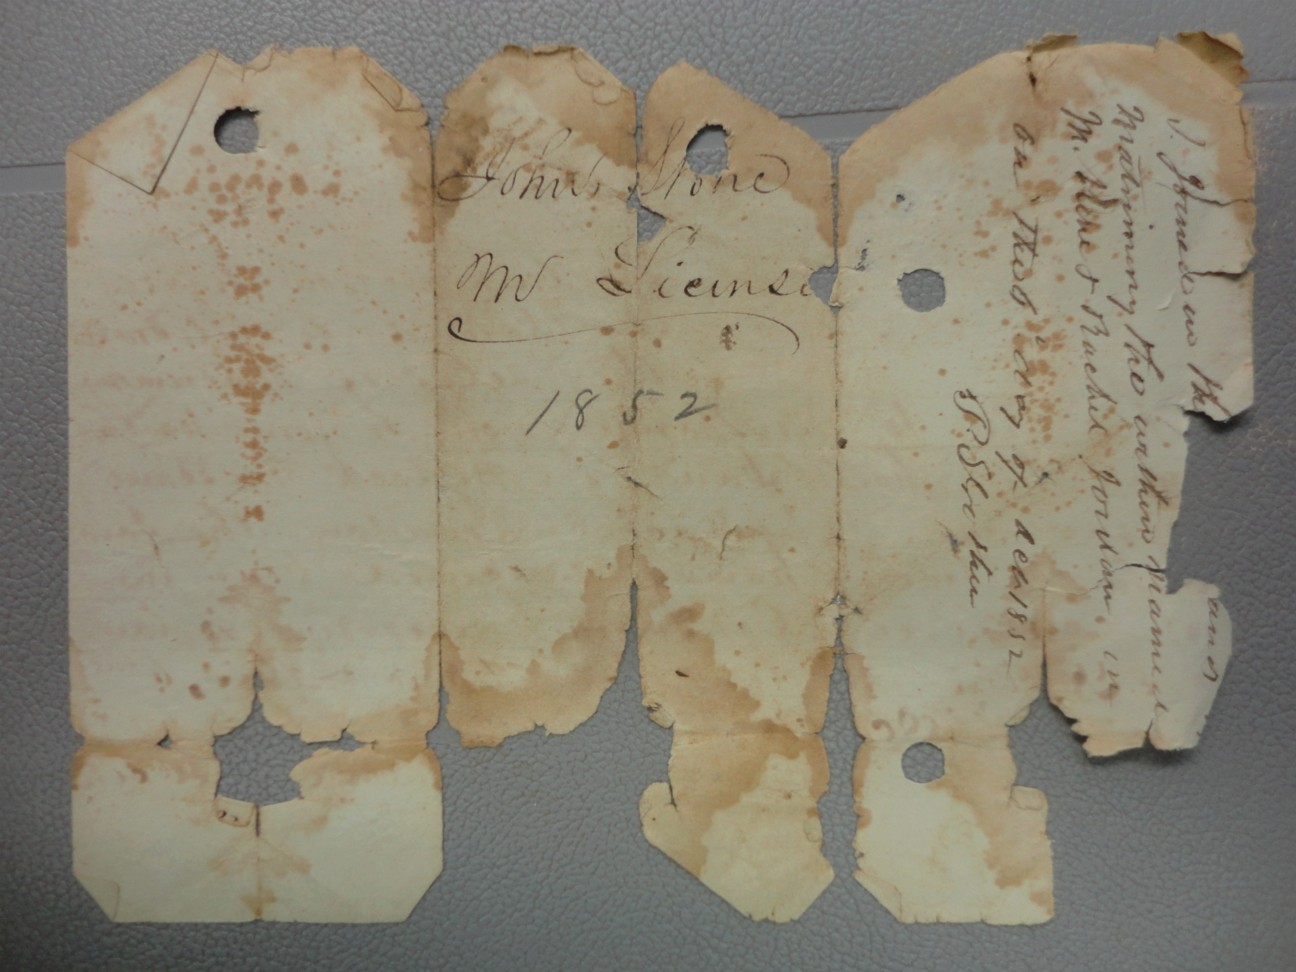 John Stone
M License
1852
I Joined in the
and
Matrimony the within named
M. Stone & Rachel Jordan. in
on This 8 day of dec 1852